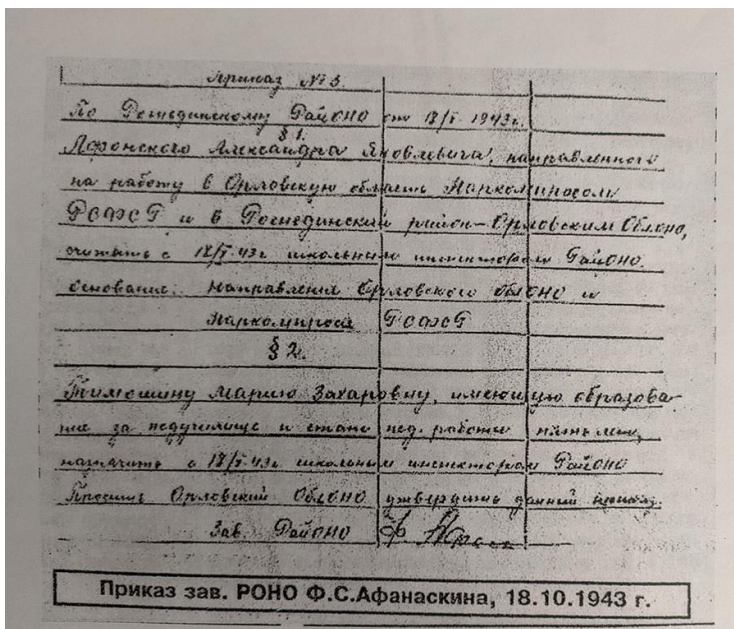 Приказ №3.
По Рогнединскому Районо от 18/X 1943г.
§ 1.
Александра Яковлевича, направленного
на работу в Орловскую область Наркомпросом
РСФСР и в Рогнединский район - Орловским Облоно,
считать с 18/X-43г школьным инспектором Районо.
Основание: направления Орловского облоно и
Наркомпроса РСФСР
§ 2.
Тимошину Марию Захаровну, имеющую образова-
ние за педучилище и стаж пед. работы пять лет,
назначить с 18/X-43г школьным инспектором Районо
Просить Орловский Облоно утвердить данный приказ.
Зав. Районо
Приказ зав. РОНО Ф.С.Афанаскина, 18.10.1943 г.